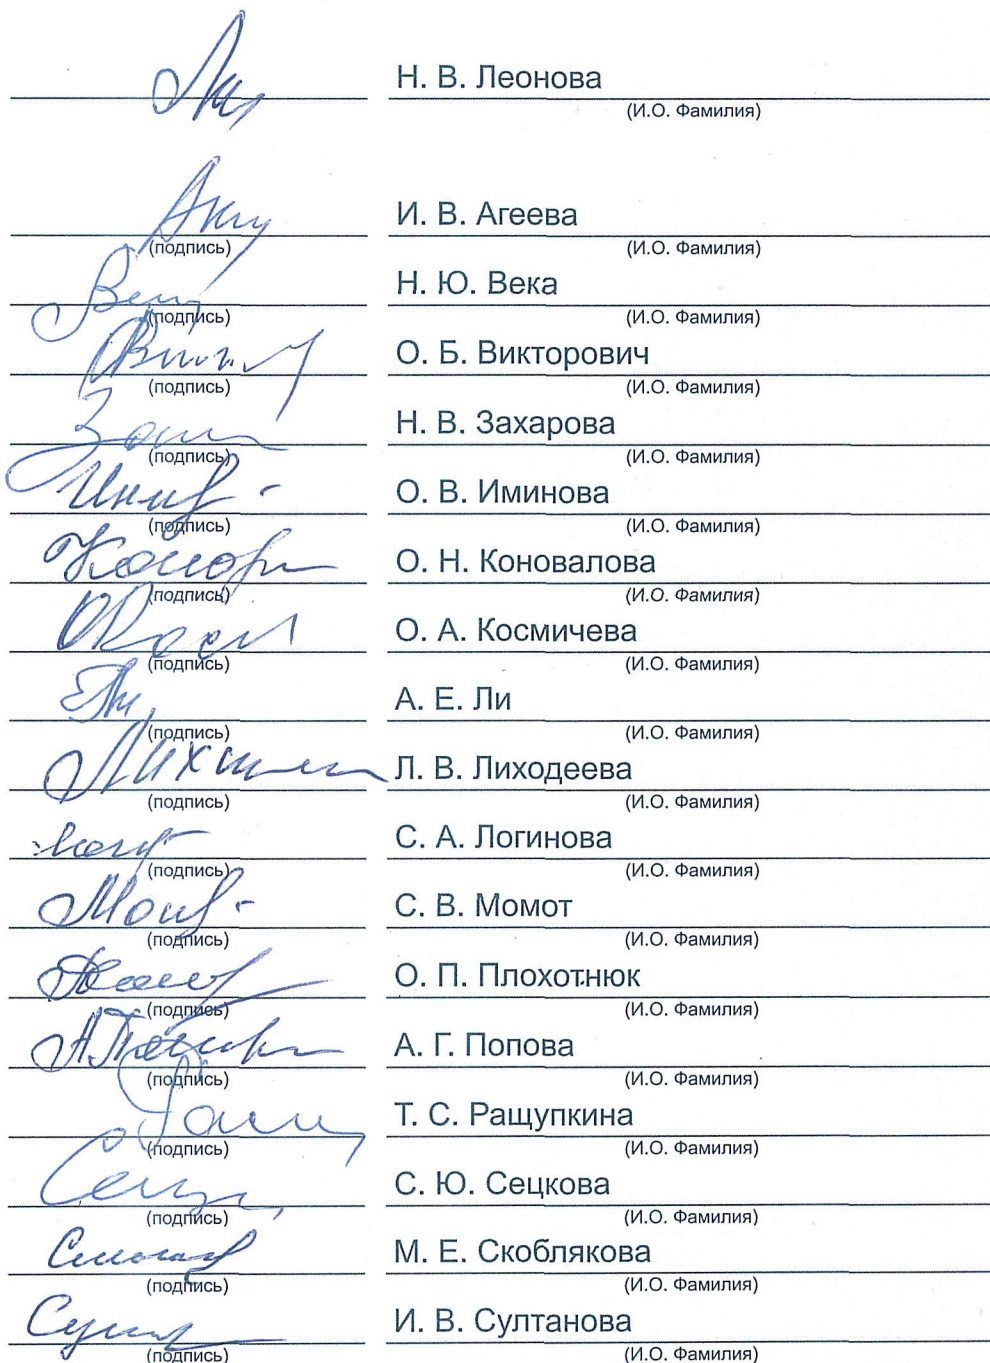 Н. В. Леонова
(И.О. Фамилия)
И. В. Агеева
(подпись) (И.О. Фамилия)
Н. Ю. Века
(подпись) (И.О. Фамилия)
О. Б. Викторович
(подпись) (И.О. Фамилия)
Н. В. Захарова
(подпись) (И.О. Фамилия)
О. В. Иминова
(подпись) (И.О. Фамилия)
О. Н. Коновалова
(подпись) (И.О. Фамилия)
О. А. Космичева
(подпись) (И.О. Фамилия)
А. Е. Ли
(подпись) (И.О. Фамилия)
Л. В. Лиходеева
(подпись) (И.О. Фамилия)
С. А. Логинова
(подпись) (И.О. Фамилия)
С. В. Момот
(подпись) (И.О. Фамилия)
О. П. Плохотнюк
(подпись) (И.О. Фамилия)
А. Г. Попова
(подпись) (И.О. Фамилия)
Т. С. Ращупкина
(подпись) (И.О. Фамилия)
С. Ю. Сецкова
(подпись) (И.О. Фамилия)
М. Е. Скоблякова
(подпись) (И.О. Фамилия)
И. В. Султанова
(подпись) (И.О. Фамилия)